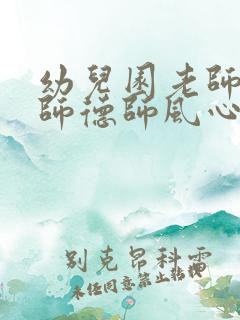 幼兒園老師
師德師風心
別克昂科雷
未任同意禁止転載